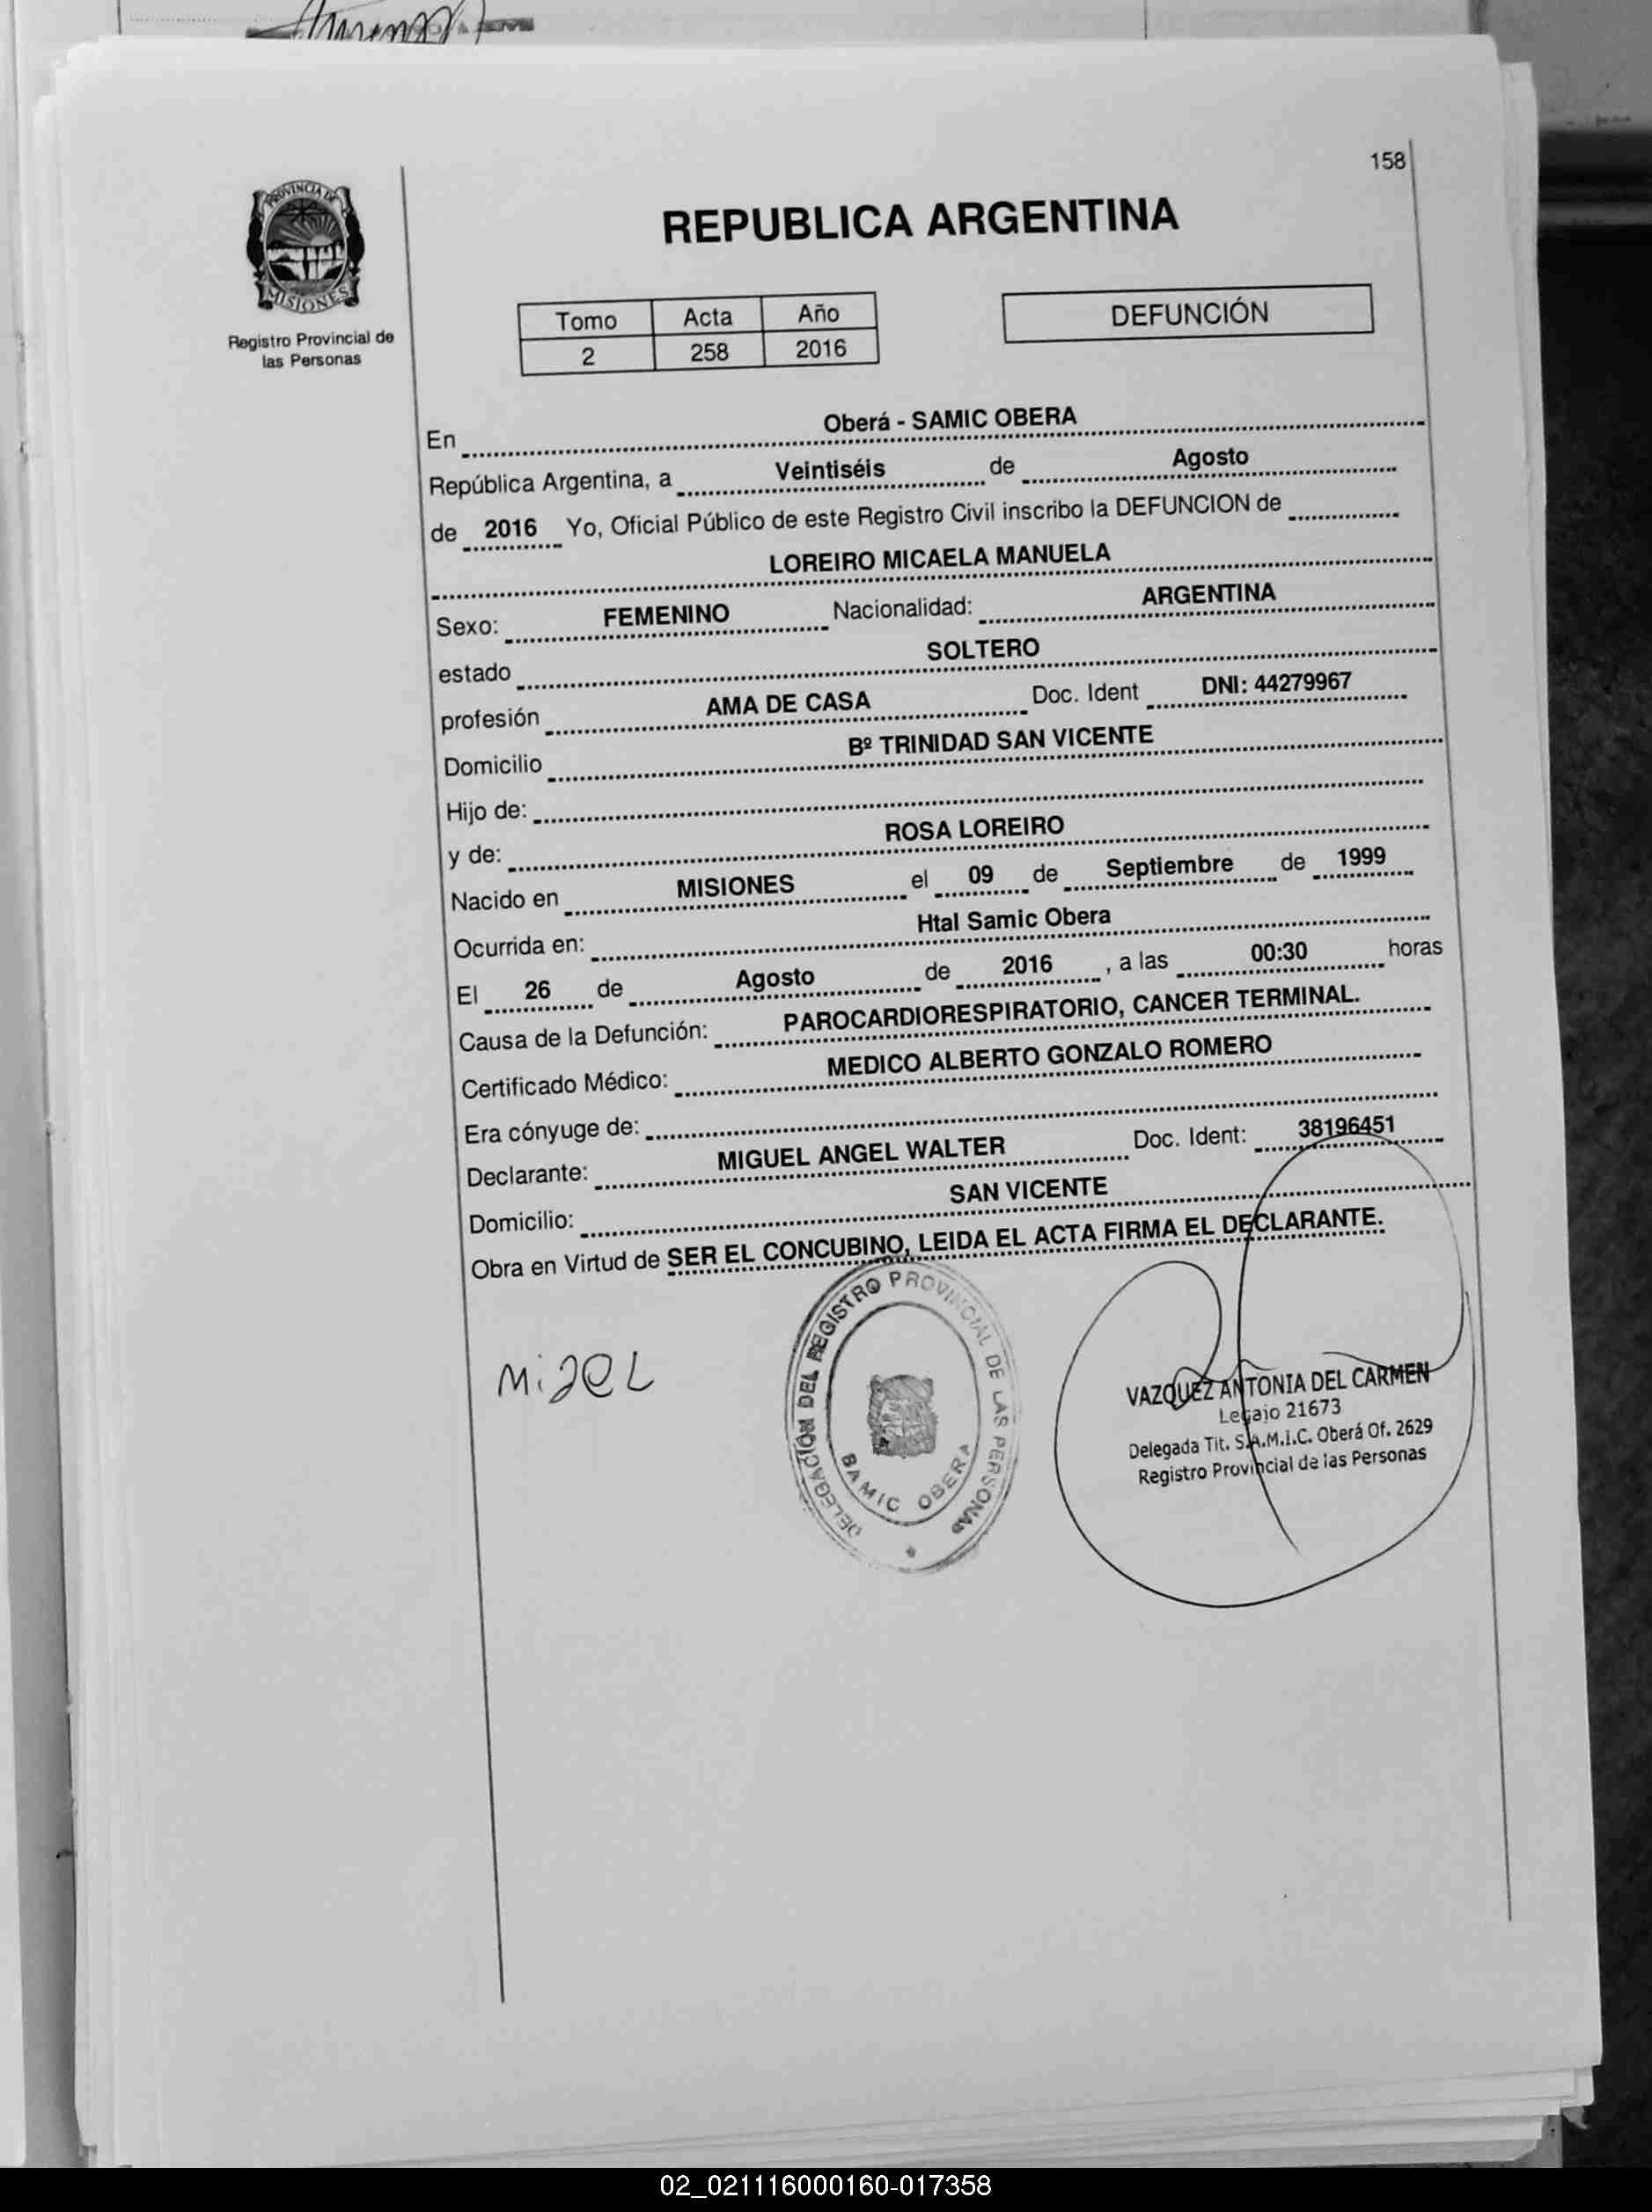 158
PROVINCIA DE
MISIONES
Registro Provincial de
las Personas
REPUBLICA ARGENTINA
Tomo Acta Año
2 258 2016
DEFUNCIÓN
En Oberá - SAMIC OBERA
República Argentina, a Veintiséis de Agosto
de 2016 Yo, Oficial Público de este Registro Civil inscribo la DEFUNCION de
LOREIRO MICAELA MANUELA
Sexo: FEMENINO Nacionalidad: ARGENTINA
estado SOLTERO
profesión AMA DE CASA Doc. Ident DNI: 44279967
Domicilio Bº TRINIDAD SAN VICENTE
Hijo de:
y de: ROSA LOREIRO
Nacido en MISIONES el 09 de Septiembre de 1999
Ocurrida en: Htal Samic Obera
El 26 de Agosto de 2016 , a las 00:30 horas
Causa de la Defunción: PAROCARDIORESPIRATORIO, CANCER TERMINAL.
Certificado Médico: MEDICO ALBERTO GONZALO ROMERO
Era cónyuge de:
Declarante: MIGUEL ANGEL WALTER Doc. Ident: 38196451
Domicilio: SAN VICENTE
Obra en Virtud de SER EL CONCUBINO, LEIDA EL ACTA FIRMA EL DECLARANTE.
DELEGACIÓN DEL REGISTRO PROVINCIAL DE LAS PERSONAS
SAMIC OBERA
VAZQUEZ ANTONIA DEL CARMEN
Legajo 21673
Delegada Tit. S.A.M.I.C. Oberá Of. 2629
Registro Provincial de las Personas
02_021116000160-017358